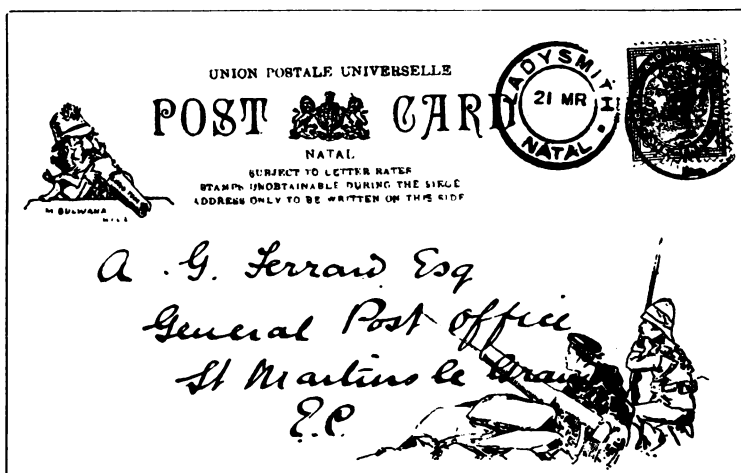 UNION POSTALE UNIVERSELLE
POST CARD
NATAL
SUBJECT TO LETTER RATES
STAMPS UNOBTAINABLE DURING THE SIEGE
ADDRESS ONLY TO BE WRITTEN ON THIS SIDE
LADYSMITH
21 MR
NATAL
BULWANA
HILL
A. G. Ferrard Esq
General Post Office
St Martins le Grand
E.C.